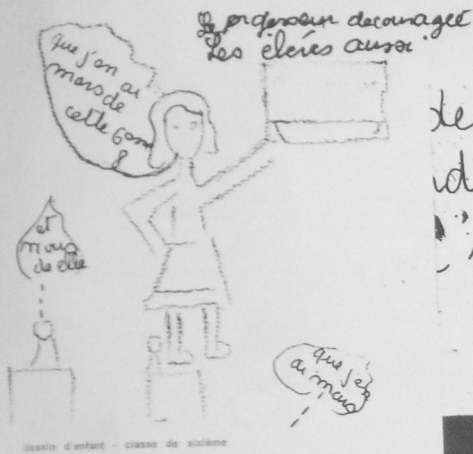 Le professeur decouragée
Les élèves aussi
que j'en ai
mars de
cette 6em
et
nous
de elle
que j'en
ai mars
dessin d'enfant - classe de sixième
de